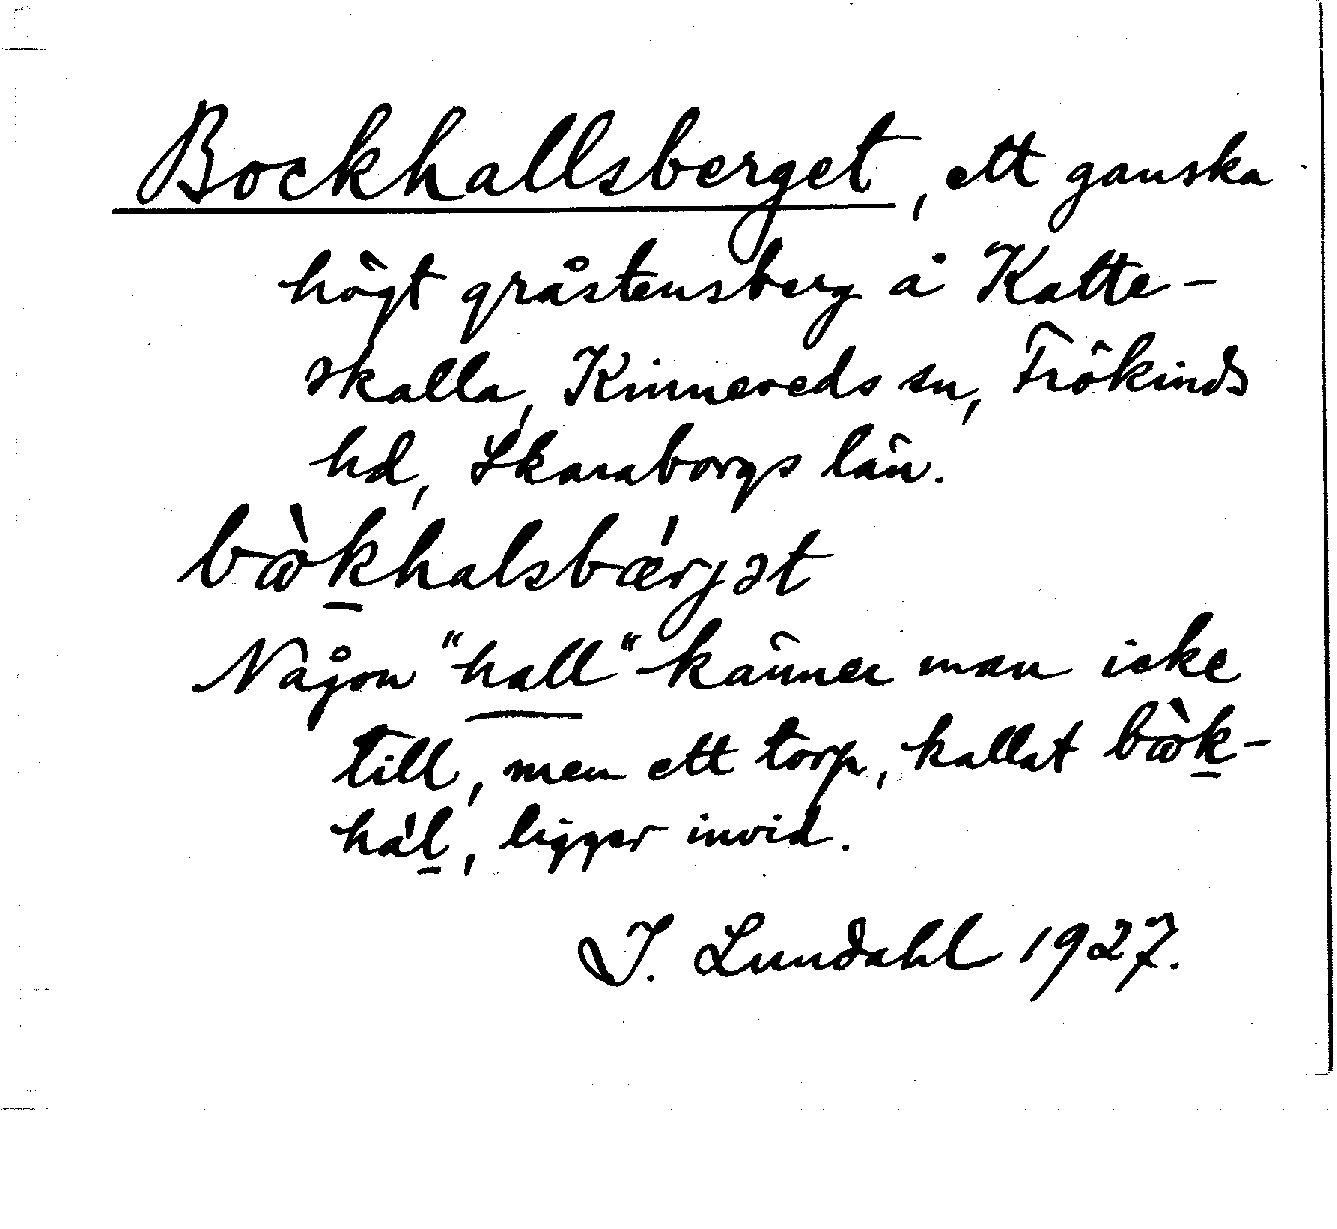 Bockhallsberget, ett ganska
högt gråstensberg å Katte-
skalla, Kinneveds sn, Frökinds
hd, Skaraborgs län.
bɷ̀khalsbǽrjət
Någon "hall" känner man icke
till, men ett torp, kallat bɷ̀k-
hál, ligger invid.
J. Lundahl 1927.